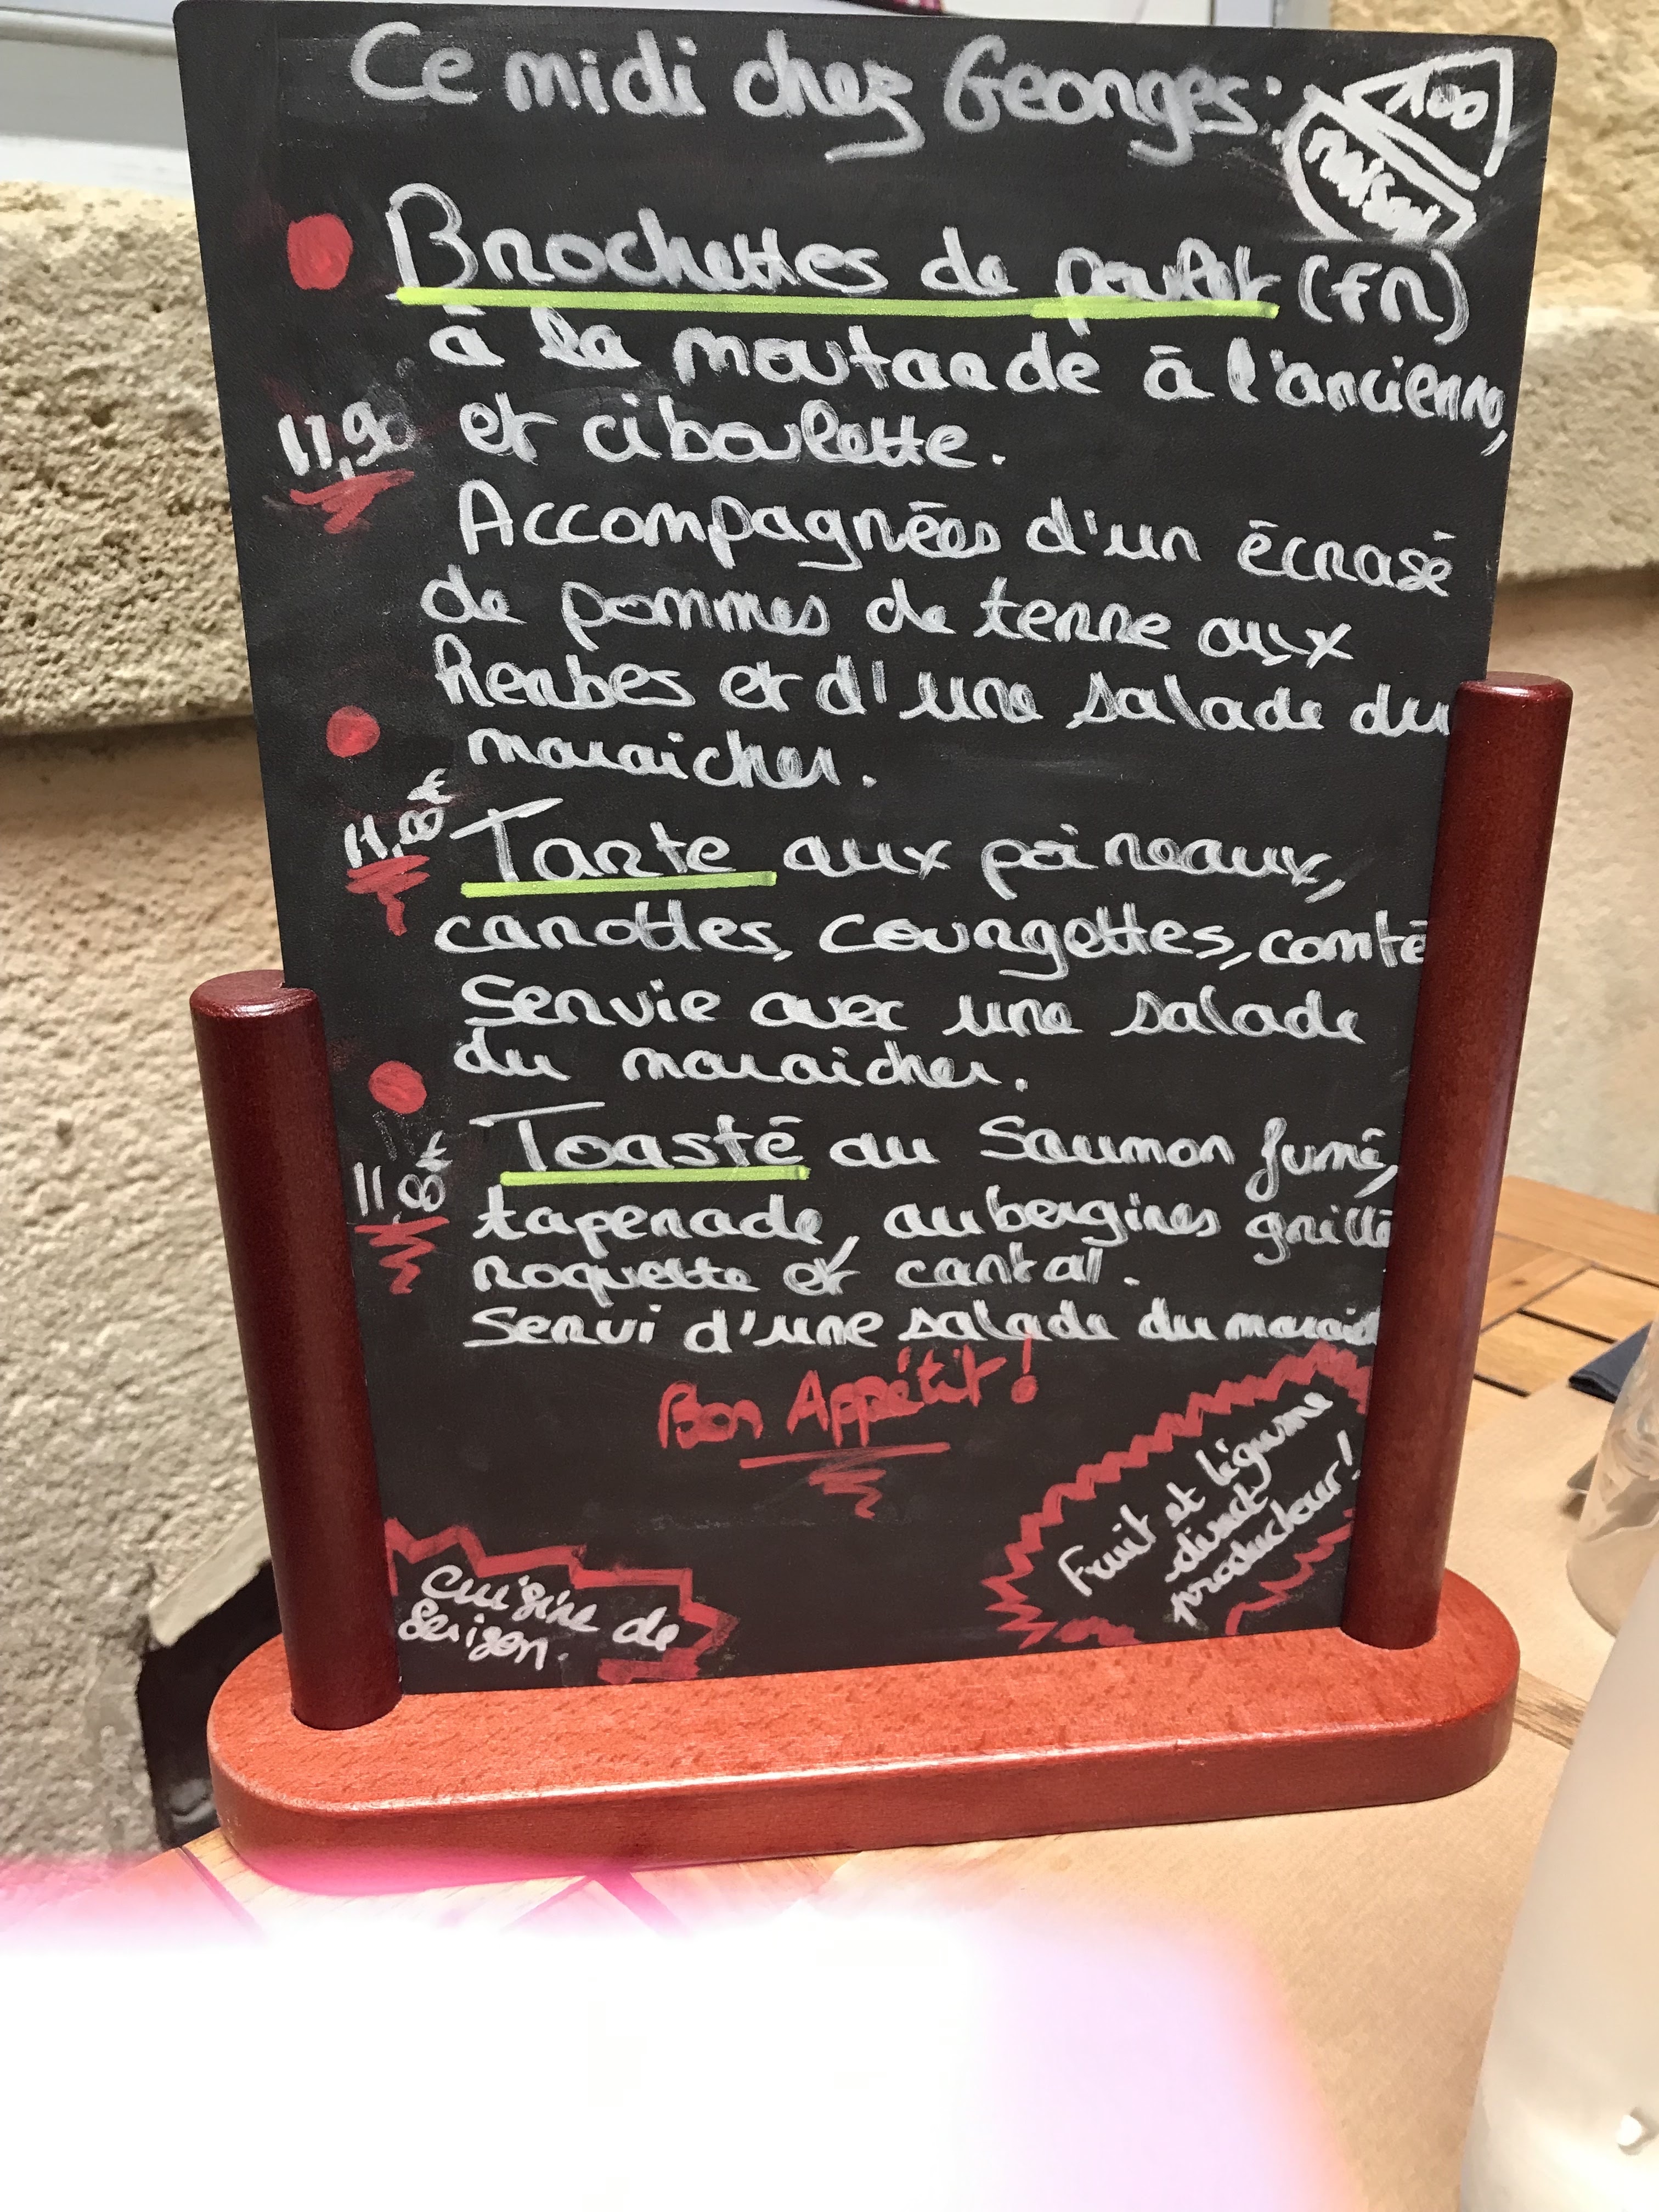 Ce midi chez Georges:
100
maison
Brochettes de poulet (FR)
à la moutarde à l'ancienne,
11,90
et ciboulette.
Accompagnées d'un écrasé
de pommes de terre aux
herbes et d'une salade du
maraicher.
Tarte aux poireaux,
carottes, courgettes, comté
Servie avec une salade
du maraicher.
Toasté au Saumon fumé,
tapenade, aubergines grillé
roquette et cantal.
Servi d'une salade du maraich
Bon Appétit!
Fruit et légume
direct
producteur!
cuisine de